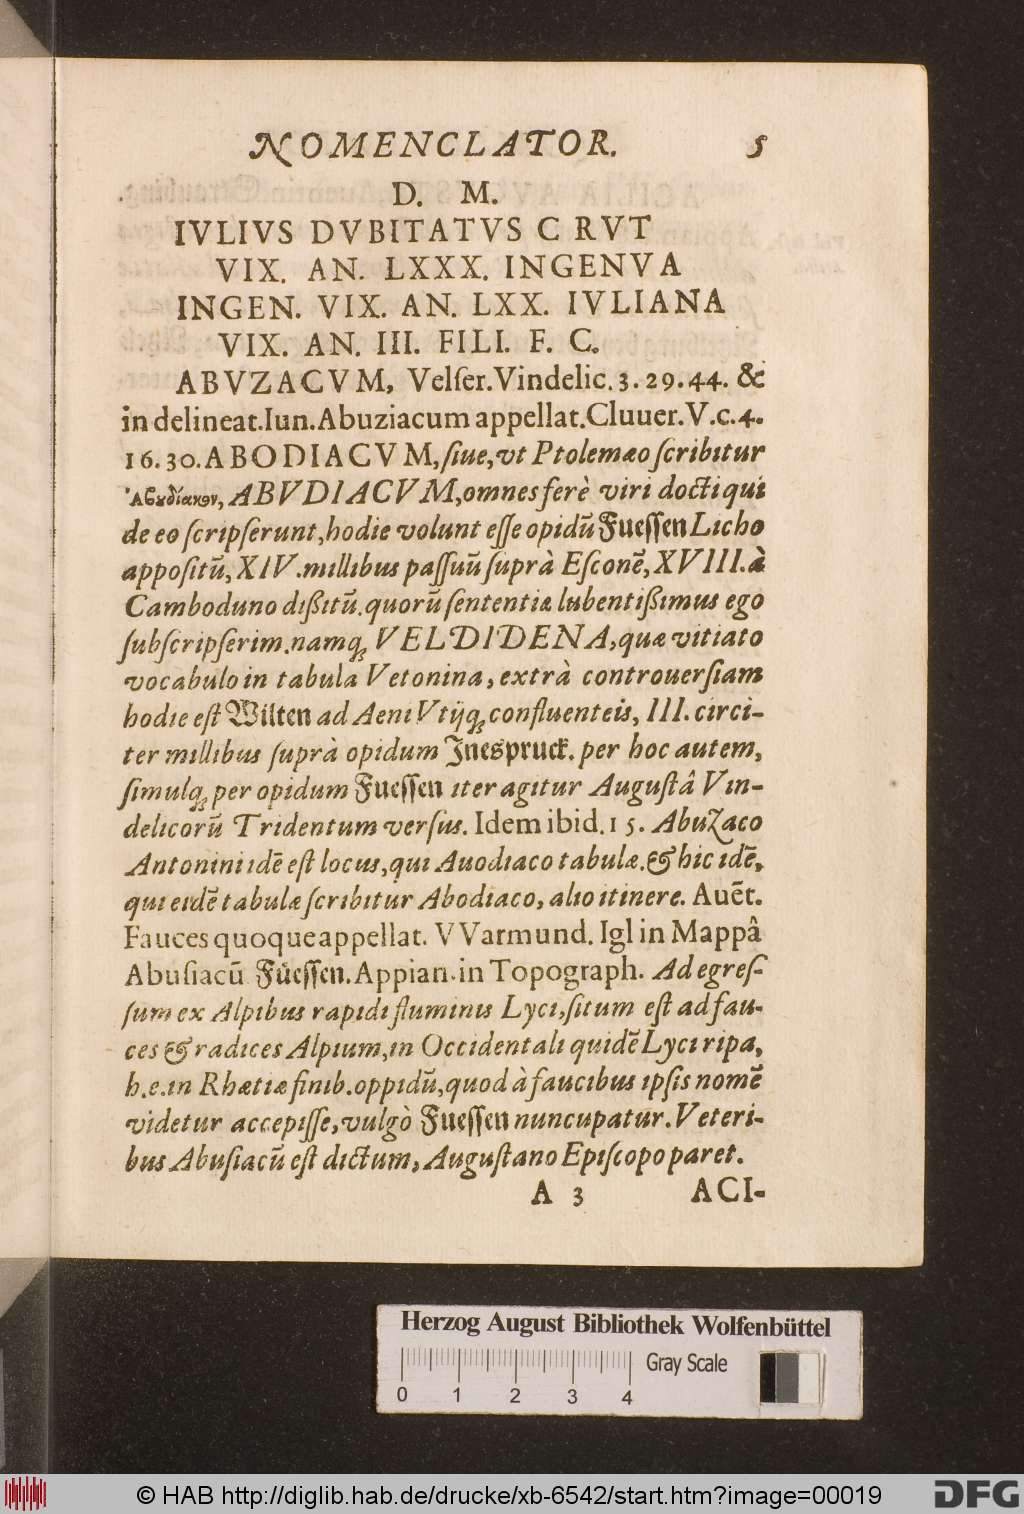 NOMENCLATOR. 5
D. M.
IVLIVS DVBITATVS C RVT
VIX. AN. LXXX. INGENVA
INGEN. VIX. AN. LXX. IVLIANA
VIX. AN. III. FILI. F. C.
ABVZACVM, Velſer. Vindelic. 3. 29. 44. &
in delineat. Iun. Abuziacum appellat. Cluuer. V. c. 4.
16. 30. ABODIACVM, ſiue, vt Ptolemæo ſcribitur
Ἀβȣδίακον, ABVDIACVM, omnes ferè viri docti qui
de eo ſcripſerunt, hodie volunt eſſe opidū Fueſſen Licho
appoſitū, XIV. millibus paſſuū ſuprà Eſconē, XVIII. à
Camboduno dißitū. quorū ſententiæ lubentißimus ego
ſubſcripſerim. namq; VELDIDENA, quæ vitiato
vocabulo in tabula Vetonina, extrà controuerſiam
hodie eſt Wilten ad Aeni Vtijq; confluenteis, III. circi-
ter millibus ſuprà opidum Jnespruck. per hoc autem,
ſimulq; per opidum Fueſſen iter agitur Auguſtâ Vin-
delicorū Tridentum verſus. Idem ibid. 15. Abuzaco
Antonini idē eſt locus, qui Auodiaco tabulæ. & hic idē,
qui eidē tabulæ ſcribitur Abodiaco, alio itinere. Auēt.
Fauces quoque appellat. VVarmund. Igl in Mappâ
Abuſiacū Füeſſen. Appian. in Topograph. Ad egreſ-
ſum ex Alpibus rapidi fluminis Lyci, ſitum eſt ad fau-
ces & radices Alpium, in Occidentali quidē Lyci ripa,
h. e. in Rhætiæ finib. oppidū, quod à faucibus ipſis nomē
videtur accepiſſe, vulgò Fueſſen nuncupatur. Veteri-
bus Abuſiacū eſt dictum, Auguſtano Epiſcopo paret.
A 3 ACI-
Herzog August Bibliothek Wolfenbüttel
Gray Scale
0 1 2 3 4
© HAB http://diglib.hab.de/drucke/xb-6542/start.htm?image=00019
DFG